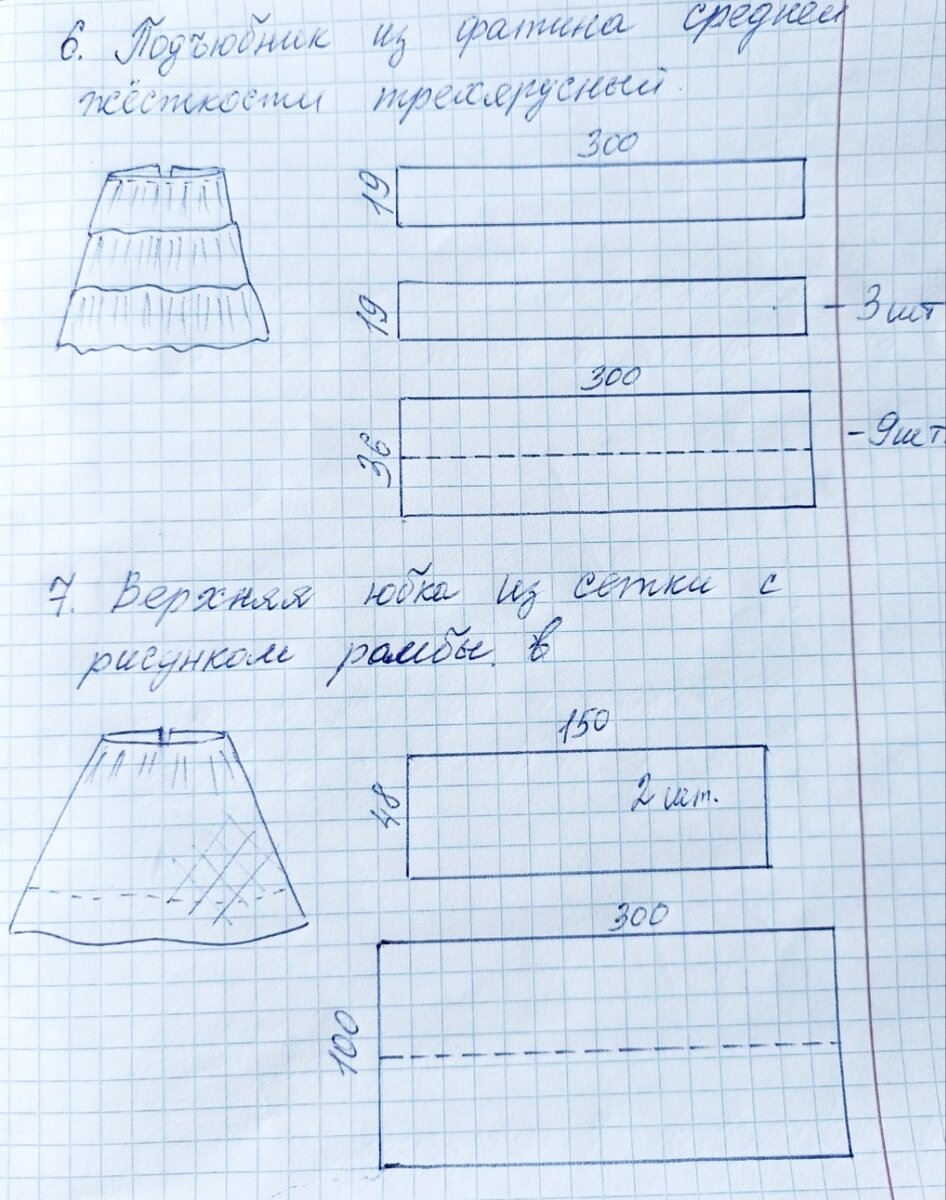 6. Подъюбник из фатина средней
жёсткости трехярусный.
300
19
19
- 3 шт
300
36
- 9шт
7. Верхняя юбка из сетки с
рисунком ромбы. в
150
48
2 шт.
300
100